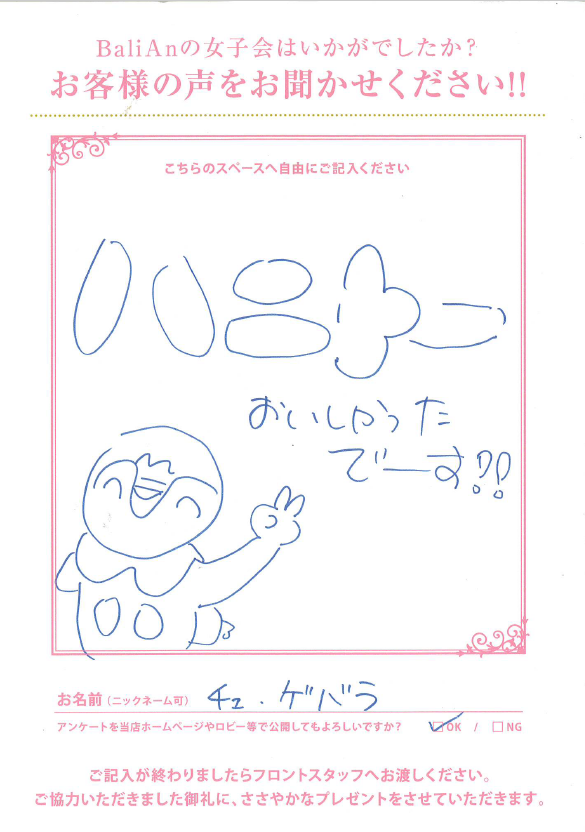 BaliAnの女子会はいかがでしたか?
お客様の声をお聞かせください!!
こちらのスペースへ自由にご記入ください
ハニトー
おいしかった
でーす!!
お名前(ニックネーム可) チェ・ゲバラ
アンケートを当店ホームページやロビー等で公開してもよろしいですか? ☑OK / □NG
ご記入が終わりましたらフロントスタッフへお渡しください。
ご協力いただきました御礼に、ささやかなプレゼントをさせていただきます。